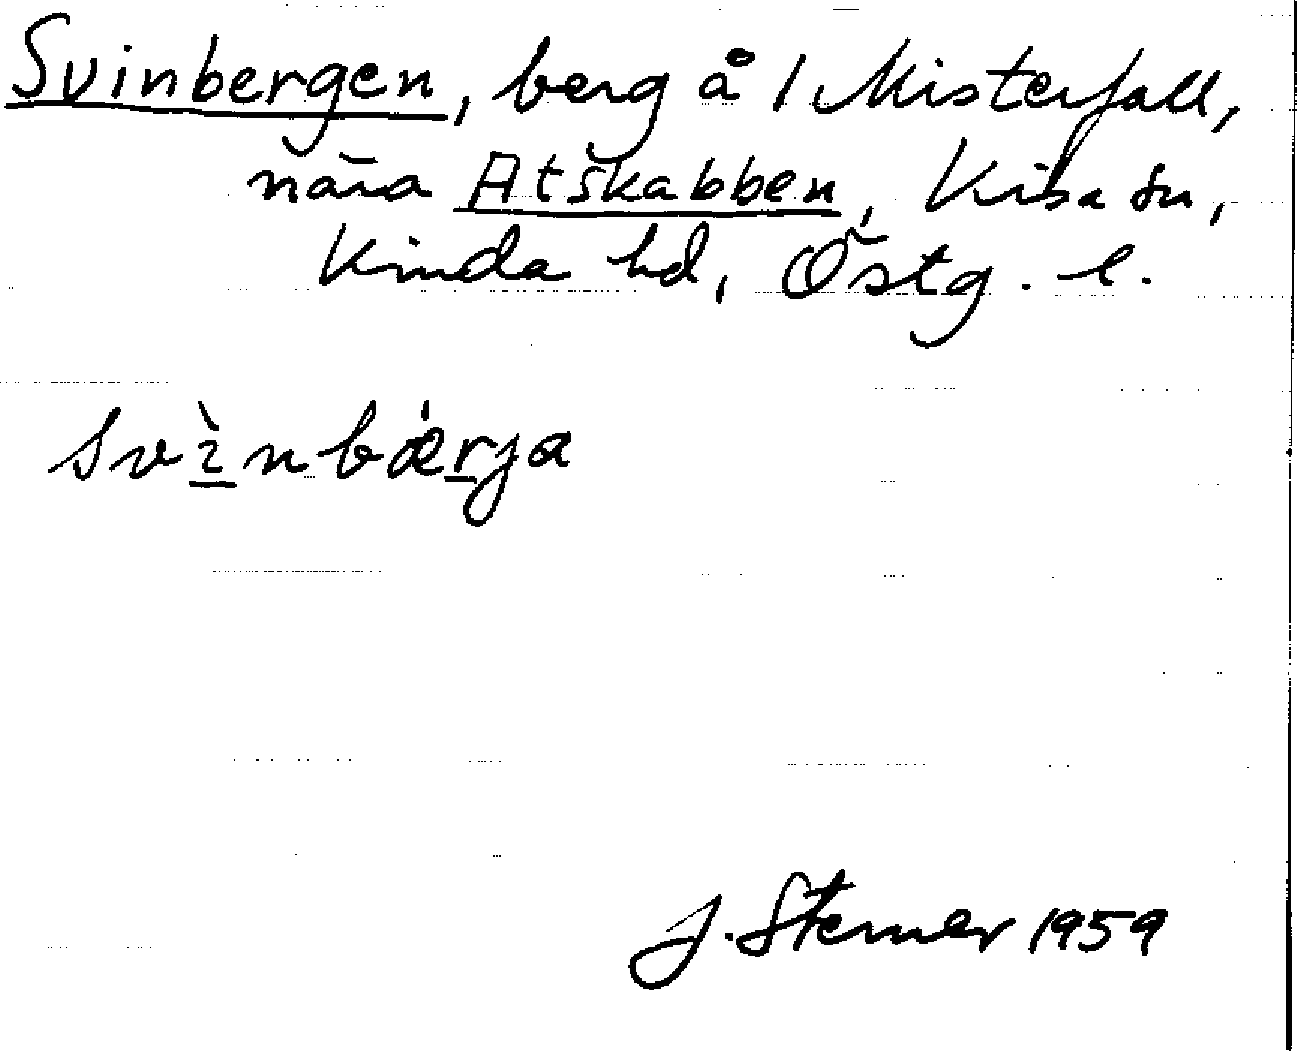 Svinbergen, berg å 1 Misterfall,
nära Atskabben, Kisa sn,
Kinda hd, Östg. l.
svìnbærja
J. Sterner 1959